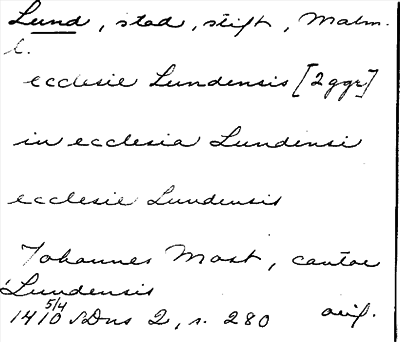 Lund, stad, stift, Malm.
l.
ecclesie Lundensis [2 ggr]
in ecclesia Lundensi
ecclesie Lundensis
Johannes Most, cantor
Lundensis
1410 5/4 SDns 2, s. 280 orig.